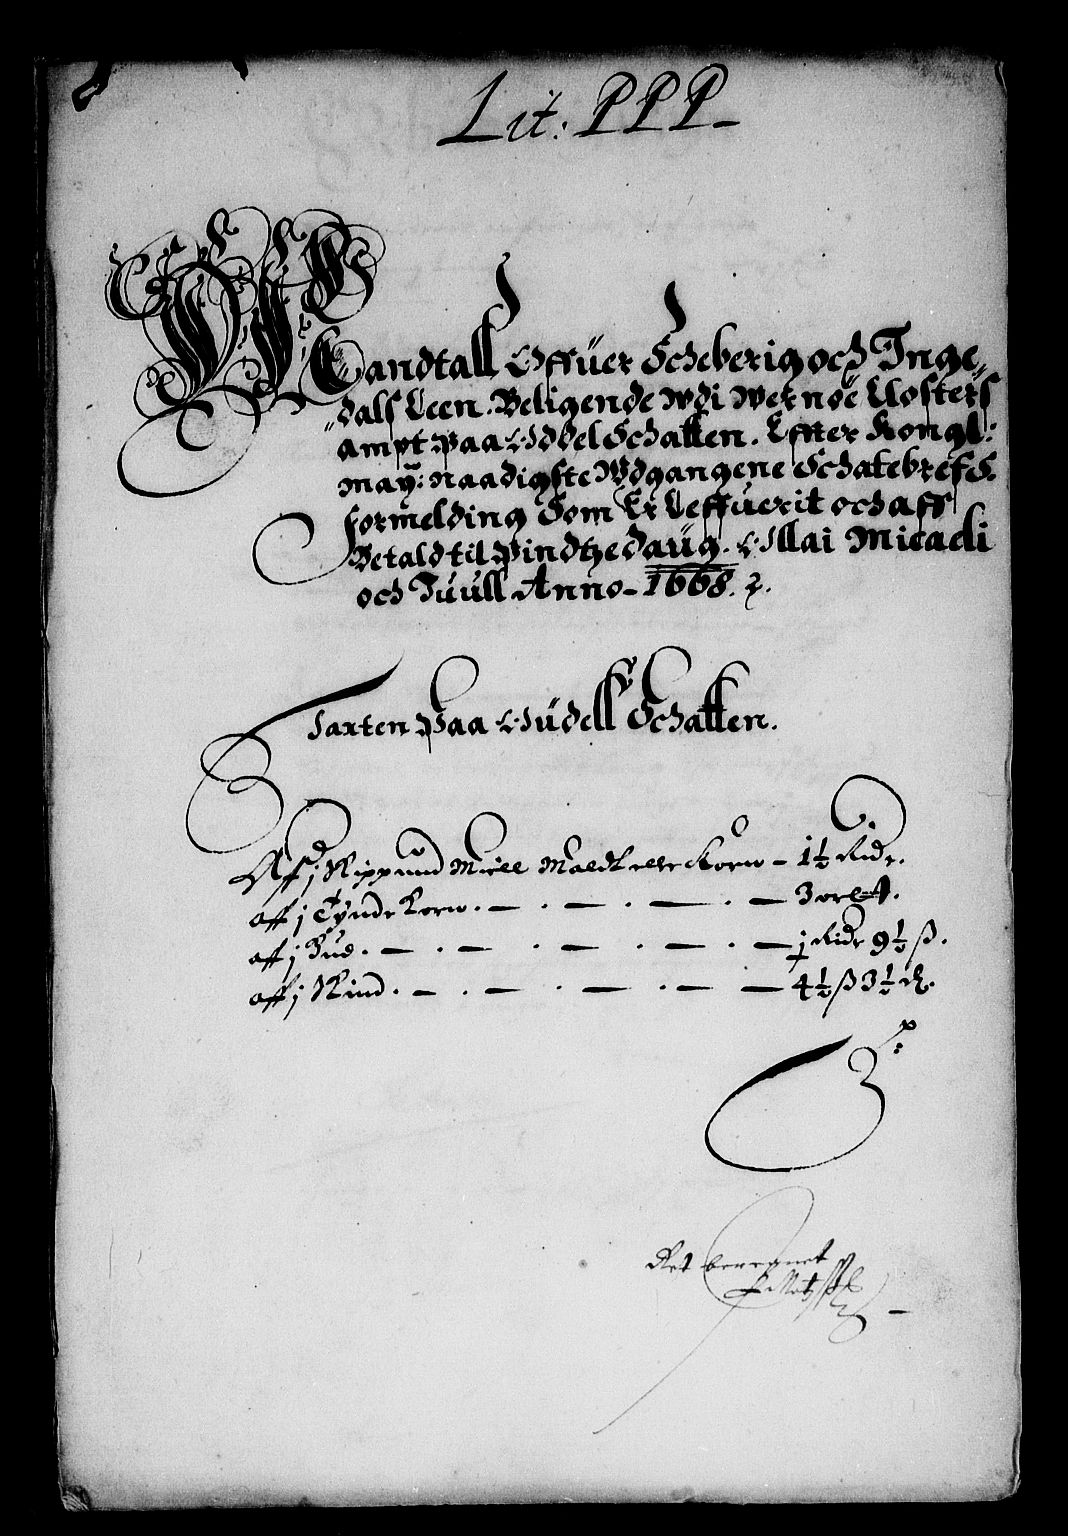 Lit: PPP
Mandtall Offuer Scheberig och Inge„
„dals Leen. Beligende udi Wernøe Closters
ampt paa Odel Schatten. Effter Kongl:
may: naadigste Udgangene Schatebref S.
formelding Som Er Leffuerit och aff
Betald til Pindtzedaug. Ollai Micaeli
och Juull Anno 1668.
Taxten paa Oudell Schatten.
Aff j Skippund Miell Maldt eller Korn – 1½ Ridr.
aff j Tynde Korn. — . — . — . — 3 ort.
aff j Hud. — . — . — . — . — j Ridr 9½ ß.
aff j Skind. — . — . — . — 4½ ß 3½ d.
Ret beregnet